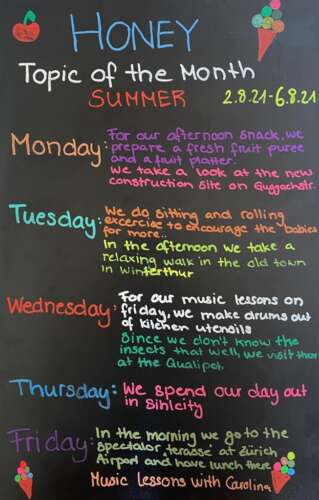 HONEY
Topic of the Month
SUMMER 2.8.21-6.8.21
Monday: For our afternoon snack, we
prepare a fresh fruit puree
and a fruit platter.
We take a look at the new
construction site on Guggachstr.
Tuesday: We do sitting and rolling
excercise to encourage the babies
for more..
In the afternoon we take a
relaxing walk in the old town
in Winterthur
Wednesday: For our music lessons on
friday, we make drums out
of kitchen utensils
Since we don't know the
insects that well, we visit them
at the Qualipet.
Thursday: We spend our day out
in Sihlcity
Friday: In the morning we go to the
spectator terasse at Zürich
Airport and have lunch there
Music lessons with Caroline